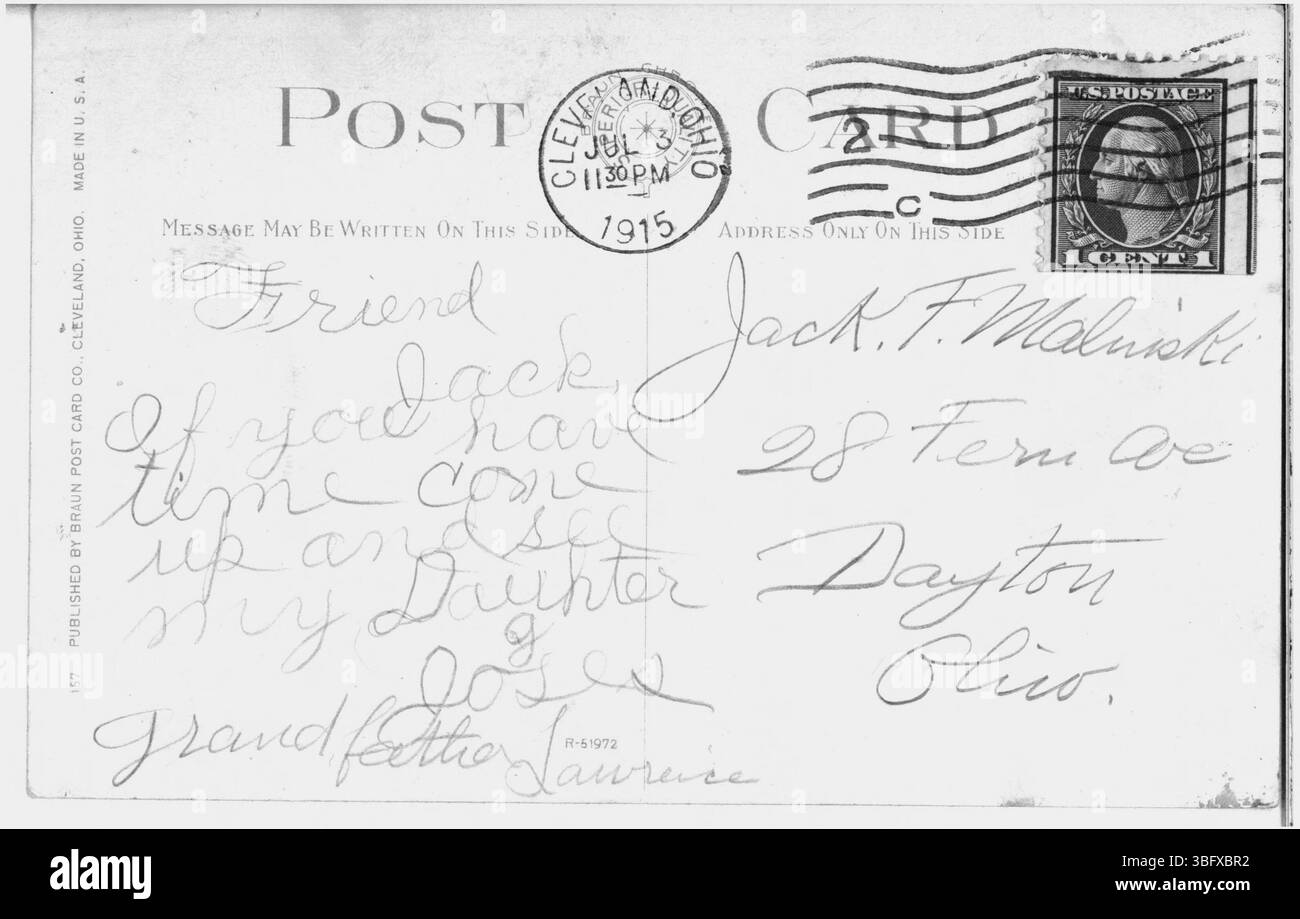 POST CARD
CLEVELAND, OHIO
JUL 3
11 30 PM
1915
2
C
U.S. POSTAGE
1 CENT 1
MESSAGE MAY BE WRITTEN ON THIS SIDE
ADDRESS ONLY ON THIS SIDE
Friend
Jack
If you have
time come
up and see
my Daughter
g
grandfather Lawrence
Jack. F. Malinski
28 Fern Ave
Dayton
Ohio.
R-51972
157 PUBLISHED BY BRAUN POST CARD CO., CLEVELAND, OHIO. MADE IN U. S. A.
alamy
Image ID: 3BFXBR2
www.alamy.com